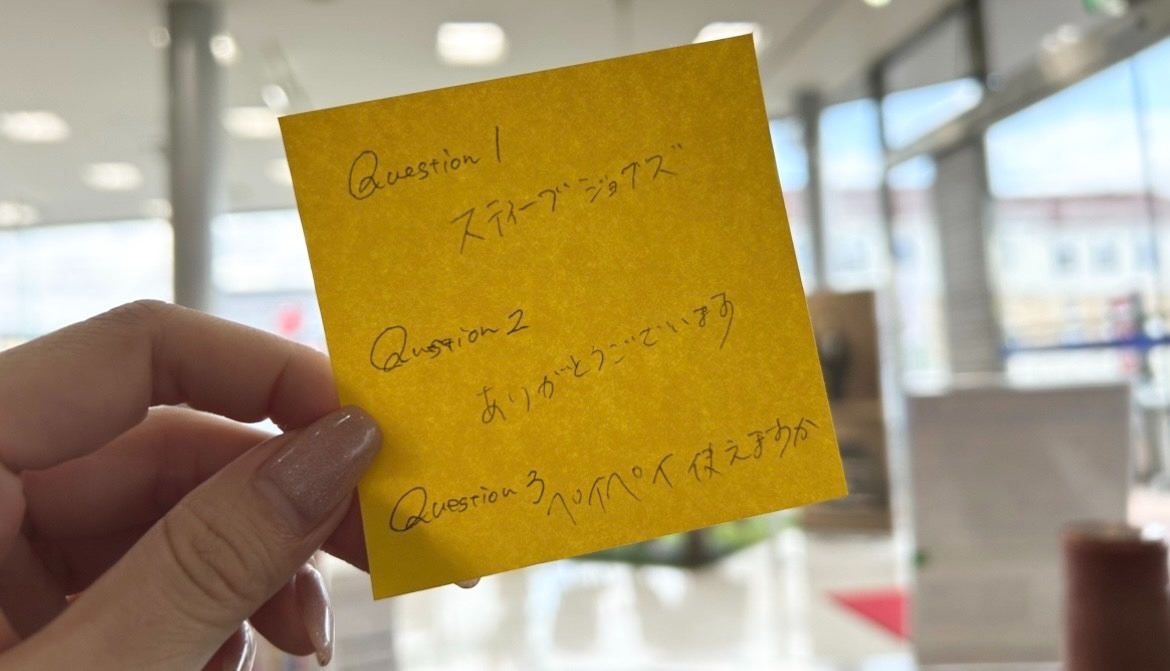 Question 1
スティーブジョブズ
Question 2
ありがとうございます
Question 3 ペイペイ使えますか